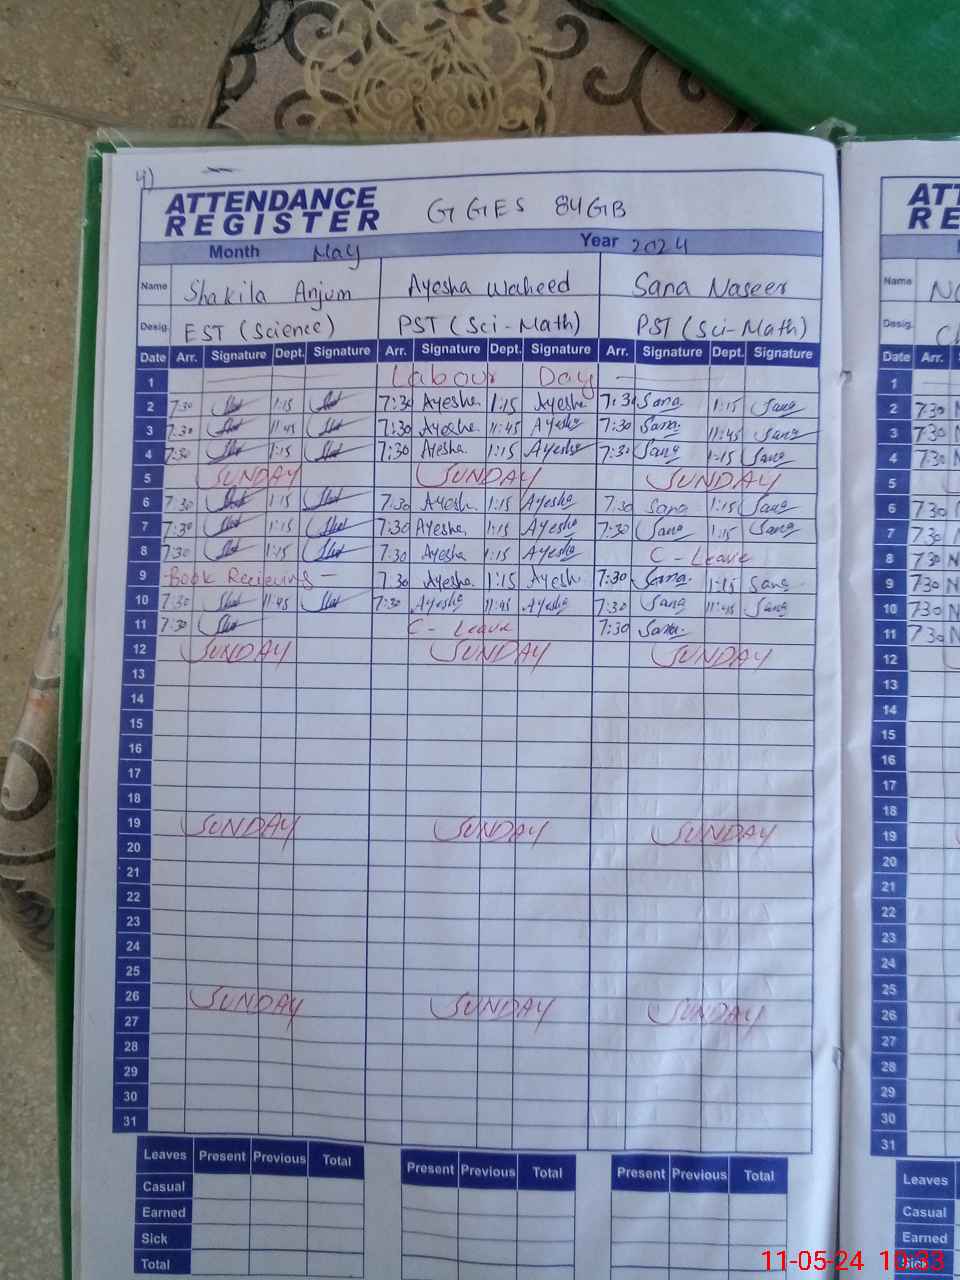 4)
ATTENDANCE REGISTER G GES 84GB
Month May Year 2024
Name Shakila Anjum Ayesha Waheed Sana Naseer
Desig. EST (Science) PST (Sci-Math) PST (Sci-Math)
Date Arr. Signature Dept. Signature Arr. Signature Dept. Signature Arr. Signature Dept. Signature
1 Labour Day
2 7:30 1:15 7:30 Ayesha 1:15 Ayesha 7:30 Sana 1:15 Sana
3 7:30 11:45 7:30 Ayesha 11:45 Ayesha 7:30 Sana 11:45 Sana
4 7:30 1:15 7:30 Ayesha 1:15 Ayesha 7:30 Sana 1:15 Sana
5 SUNDAY SUNDAY SUNDAY
6 7:30 1:15 7:30 Ayesha 1:15 Ayesha 7:30 Sana 1:15 Sana
7 7:30 1:15 7:30 Ayesha 1:15 Ayesha 7:30 Sana 1:15 Sana
8 7:30 1:15 7:30 Ayesha 1:15 Ayesha C - Leave
9 Book Recieving - 7:30 Ayesha 1:15 Ayesh 7:30 Sana 1:15 Sana
10 7:30 11:45 7:30 Ayesha 11:45 Ayesha 7:30 Sana 11:45 Sana
11 7:30 C - Leave 7:30 Sana
12 SUNDAY SUNDAY SUNDAY
13
14
15
16
17
18
19 SUNDAY SUNDAY SUNDAY
20
21
22
23
24
25
26 SUNDAY SUNDAY SUNDAY
27
28
29
30
31
Leaves Present Previous Total Present Previous Total Present Previous Total
Casual
Earned
Sick
Total
Name
Desig.
Date Arr.
1
2 7:30
3 7:30
4 7:30
5
6 7:30
7 7:30
8 7:30
9 7:30
10 7:30
11 7:30
12
13
14
15
16
17
18
19
20
21
22
23
24
25
26
27
28
29
30
31
Leaves
Casual
Earned
Sick
11-05-24 10:33